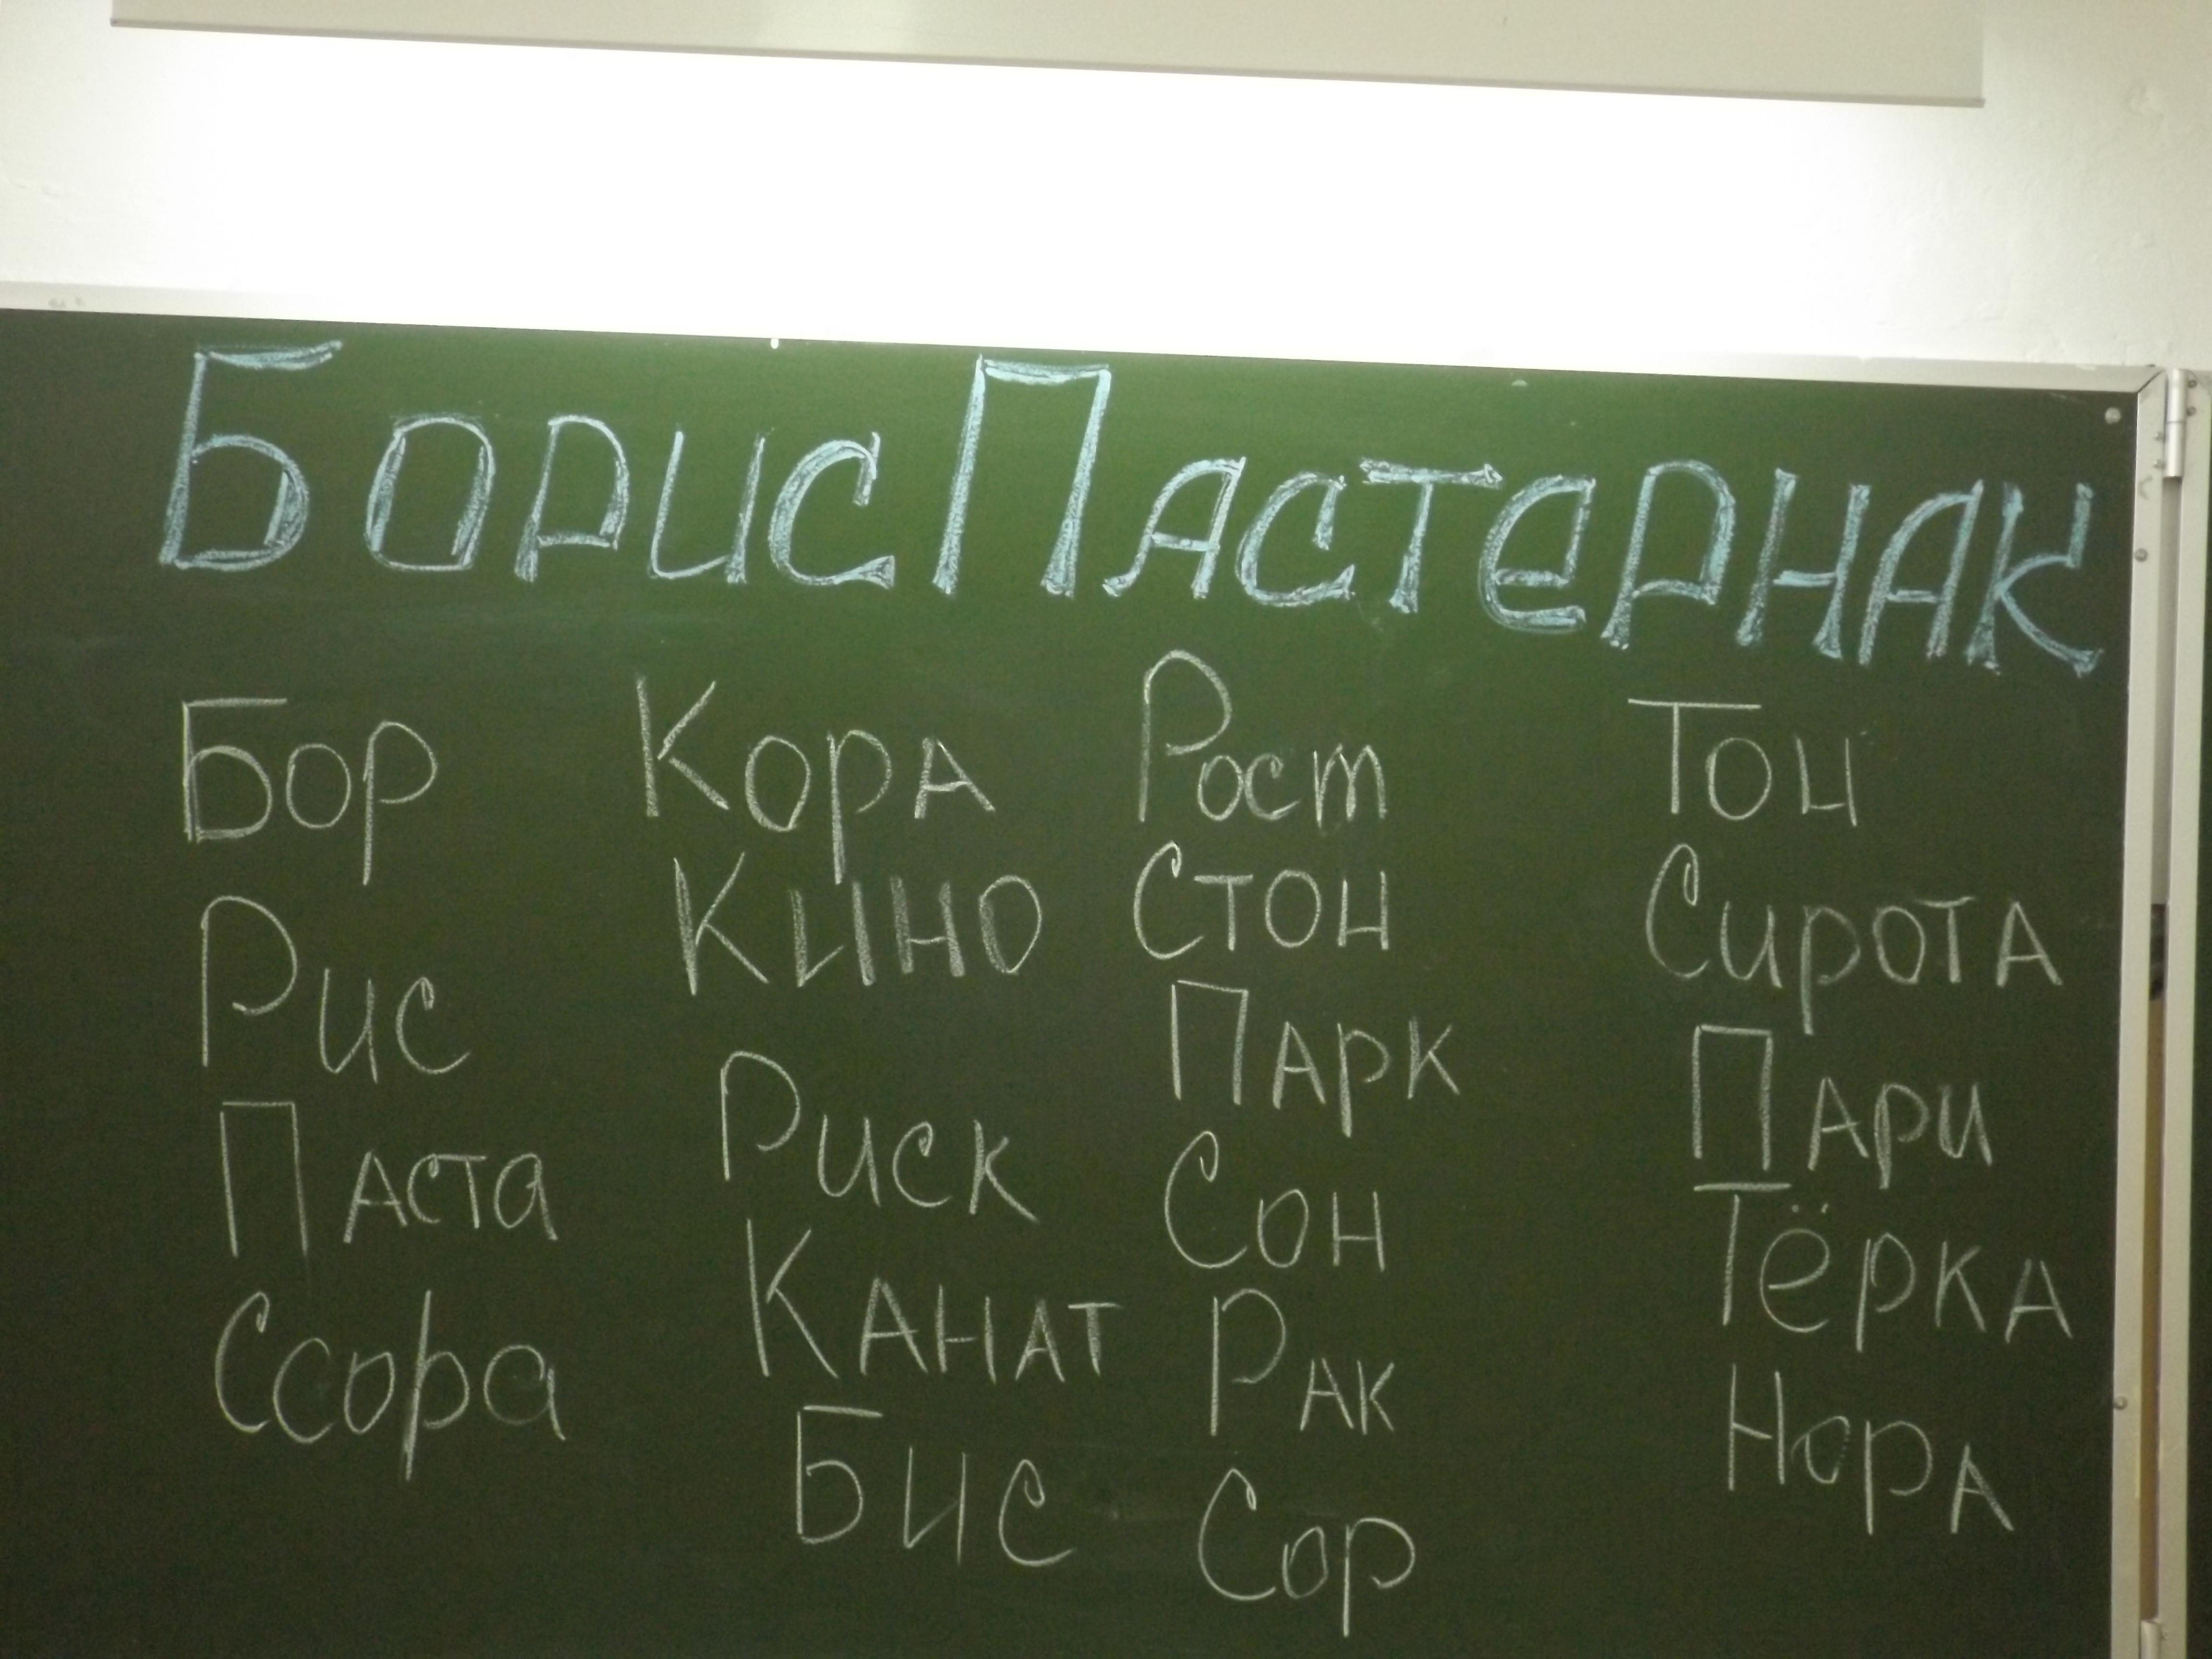 Борис Пастернак
Бор
Рис
Паста
Ссора
Кора
Кино
Риск
Канат
Бис
Рост
Стон
Парк
Сон
Рак
Сор
Тон
Сирота
Пари
Тёрка
Нора